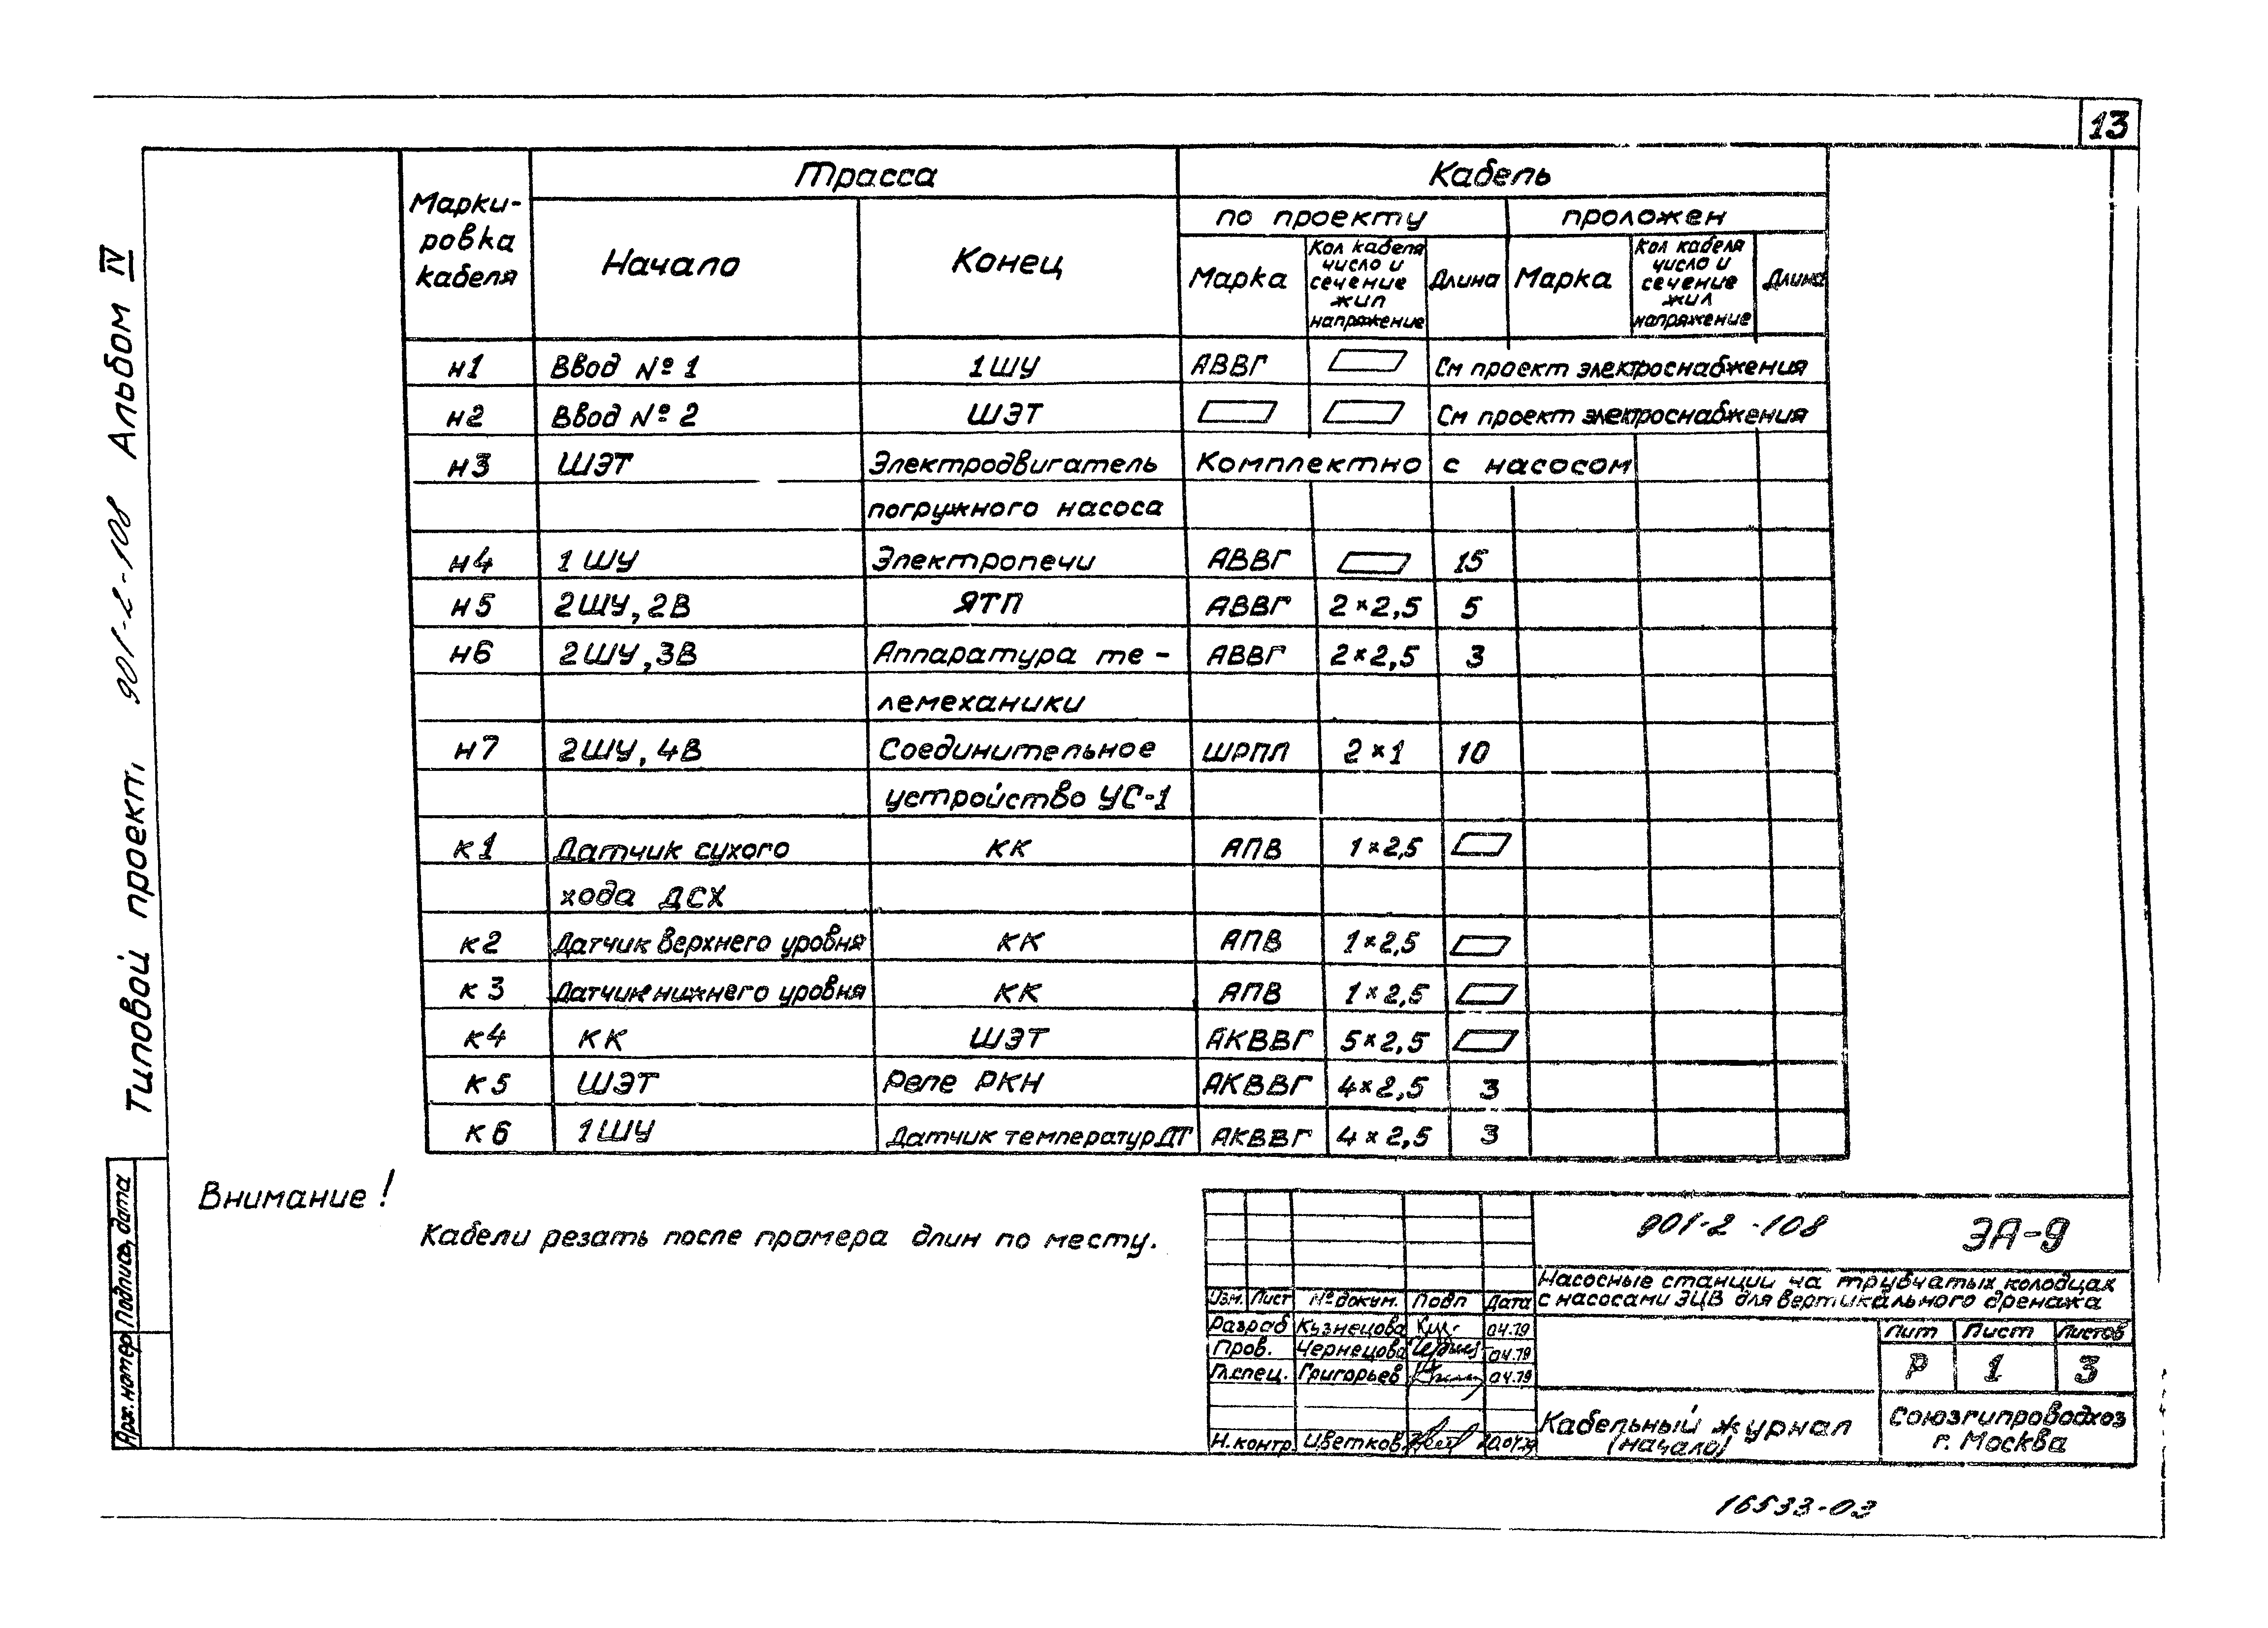 13
Типовой проект 901-2-108 Альбом IV
Марки-
ровка
кабеля
Трасса
Кабель
Начало
Конец
по проекту
проложен
Марка
Кол кабеля
число и
сечение
жил
напряжение
Длина
Марка
Кол кабеля
число и
сечение
жил
напряжение
Длина
н1 Ввод №1 1ШУ АВВГ См проект электроснабжения
н2 Ввод №2 ШЭТ См проект электроснабжения
н3 ШЭТ Электродвигатель Комплектно с насосом
погружного насоса
н4 1ШУ Электропечи АВВГ 15
н5 2ШУ, 2В ЯТП АВВГ 2×2,5 5
н6 2ШУ, 3В Аппаратура те- АВВГ 2×2,5 3
лемеханики
н7 2ШУ, 4В Соединительное ШРПЛ 2×1 10
устройство УС-1
к1 Датчик сухого КК АПВ 1×2,5
хода ДСХ
к2 Датчик верхнего уровня КК АПВ 1×2,5
к3 Датчик нижнего уровня КК АПВ 1×2,5
к4 КК ШЭТ АКВВГ 5×2,5
к5 ШЭТ Реле РКН АКВВГ 4×2,5 3
к6 1ШУ Датчик температур ДТ АКВВГ 4×2,5 3
Внимание!
Кабели резать после промера длин по месту.
Подпись, дата
Арх. номер
901-2-108 ЭА-9
Насосные станции на трубчатых колодцах
с насосами ЭЦВ для вертикального дренажа
Изм. Лист № докум. Подп Дата
Разраб Кузнецова 04.79
Пров. Чернецова 04.79
Гл.спец. Григорьев 04.79
Н.контр. Цветков
Лит Лист Листов
Р 1 3
Кабельный журнал
(начало)
Союзгипроводхоз
г. Москва
16533-03